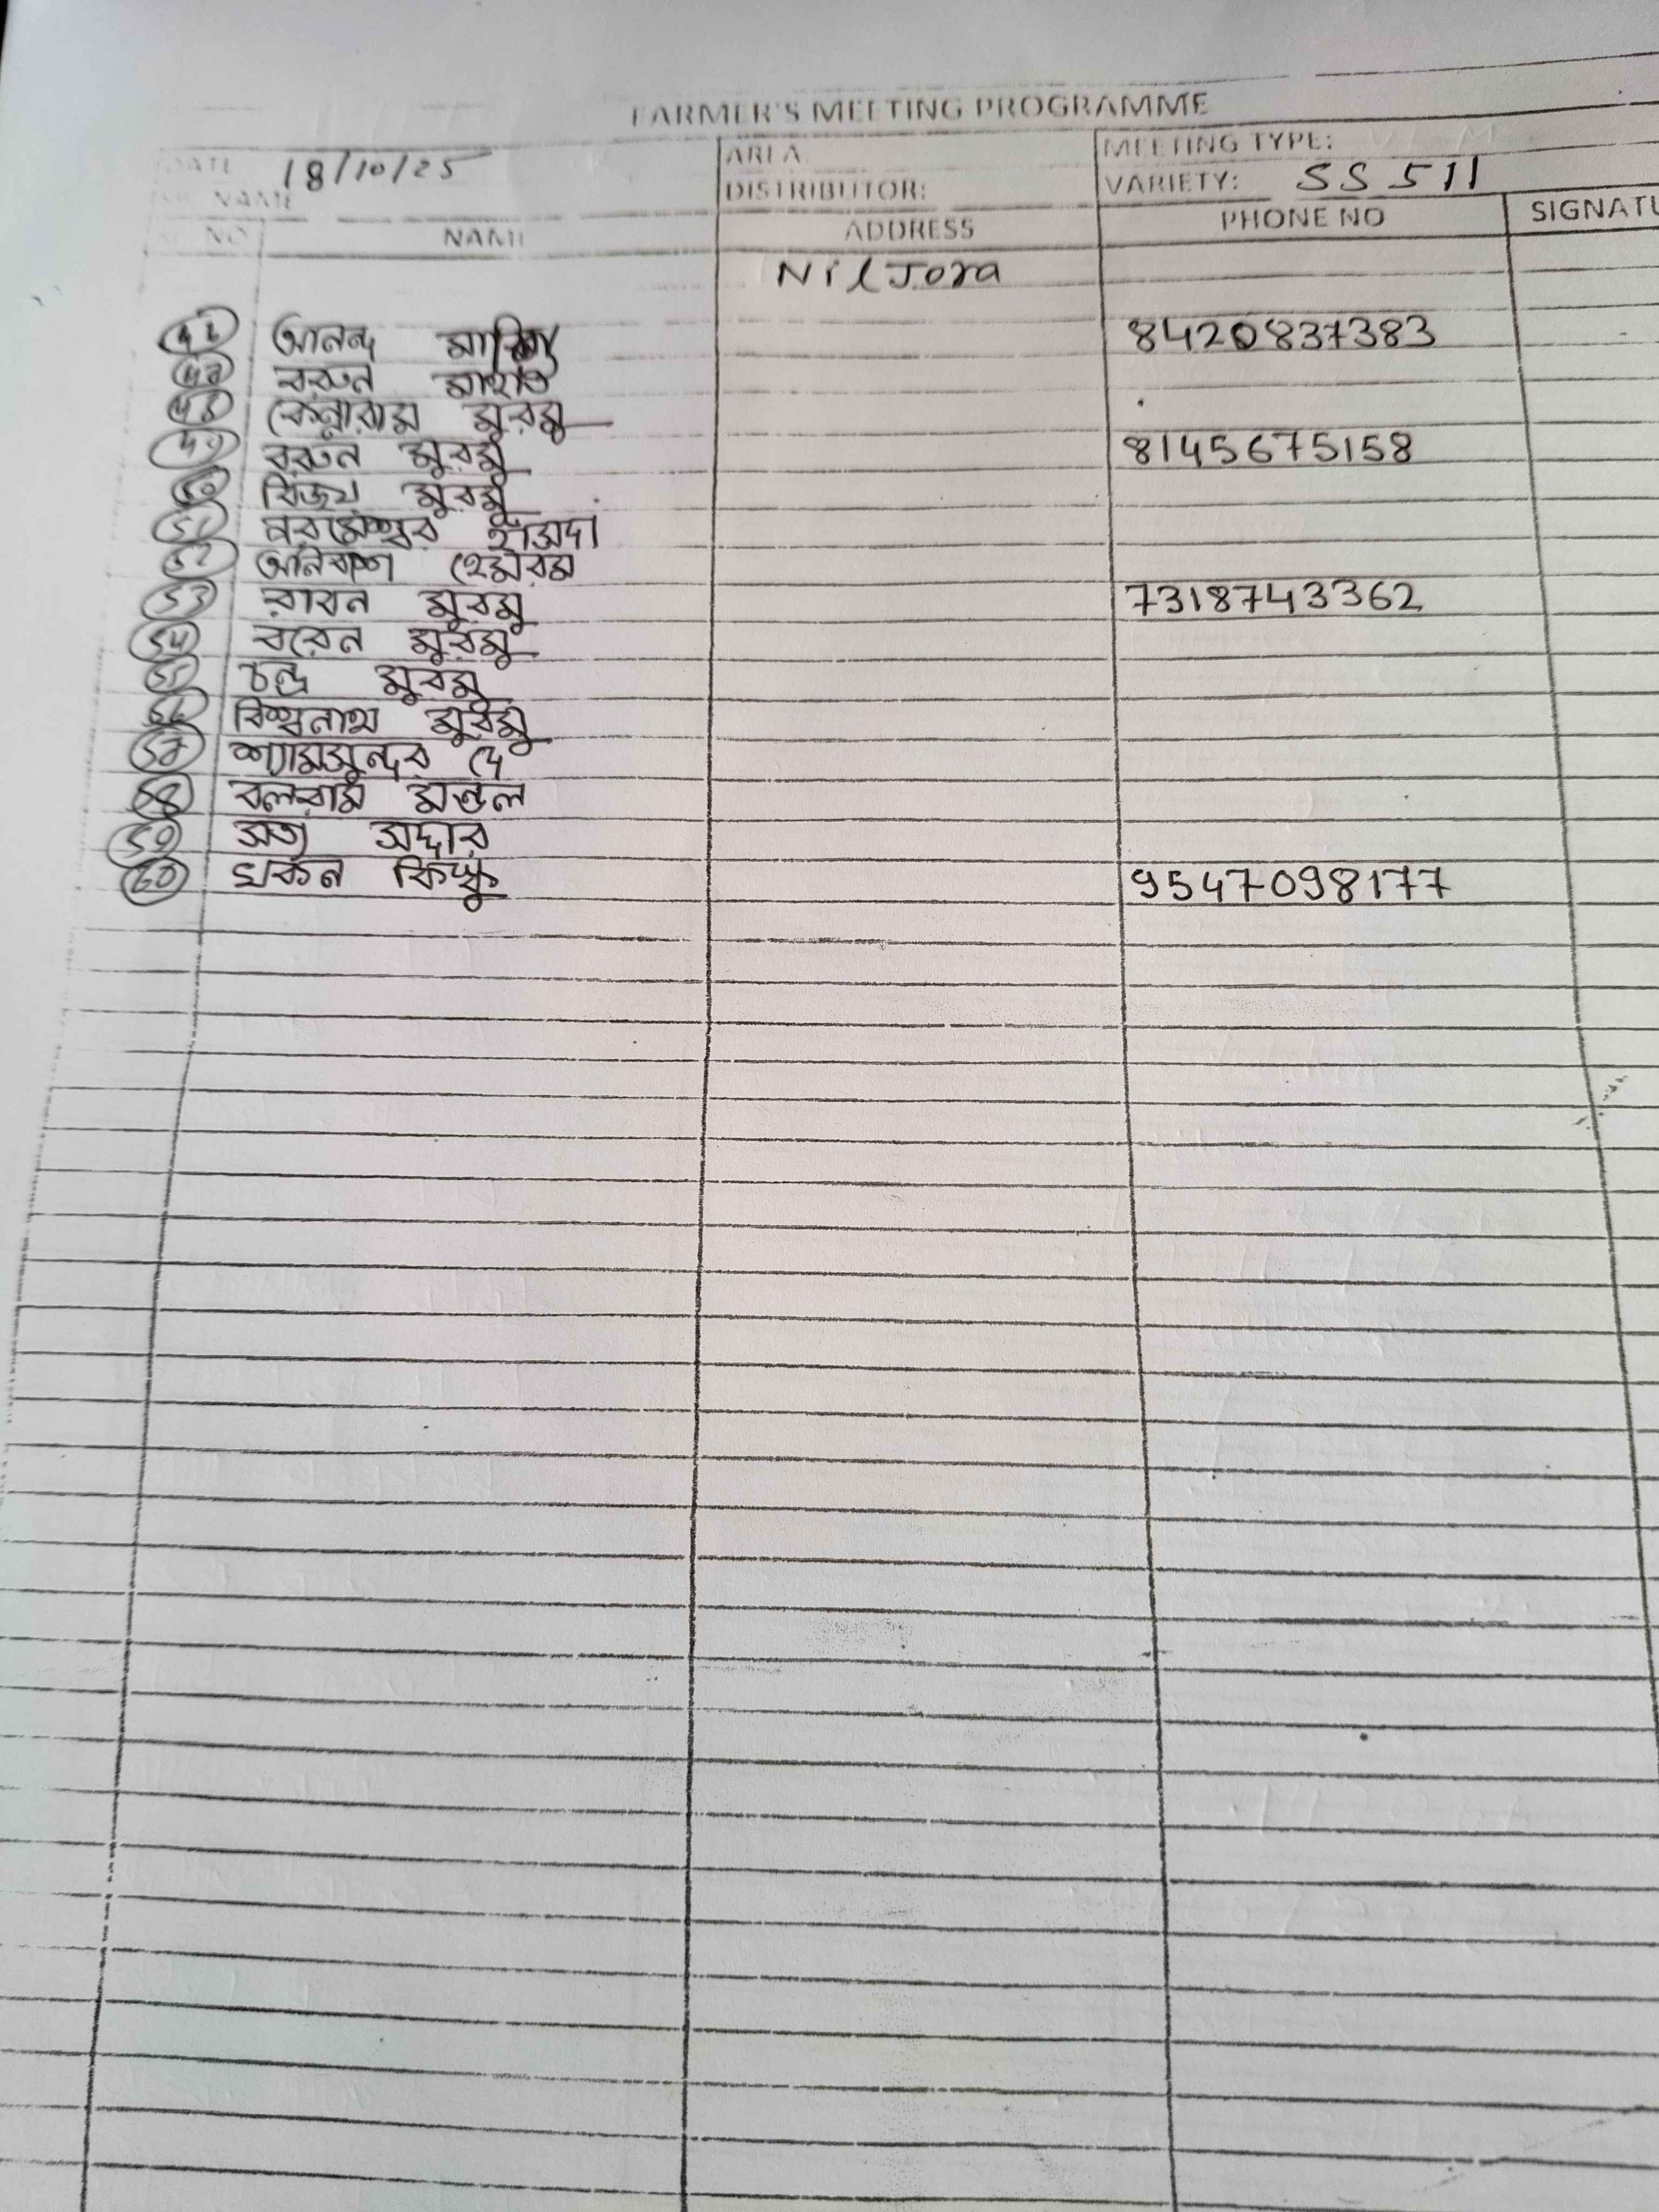 FARMER'S MEETING PROGRAMME
DATE 18/10/25 AREA MEETING TYPE:
NAME DISTRIBUTOR: VARIETY: SS 511
NO NAME ADDRESS PHONE NO SIGNATU
Nil Jora
46 আনন্দ 8420837383
47 বরুন মাহাত
48 কেনারাম মুরমু
49 বরুন মুরমু 8145675158
50 বিজয় মুরমু
51 পরমেশ্বর হাঁসদা
52 অনিবাশ হেমরম
53 রাবন মুরমু 7318743362
54 বরেন মুরমু
55 চন্দ্র মুরমু
56 বিশ্বনাথ মুরমু
57 শ্যামসুন্দর দে
58 বলরাম মণ্ডল
59 সত্য সর্দ্দার
60 খকন কিস্কু 9547098177